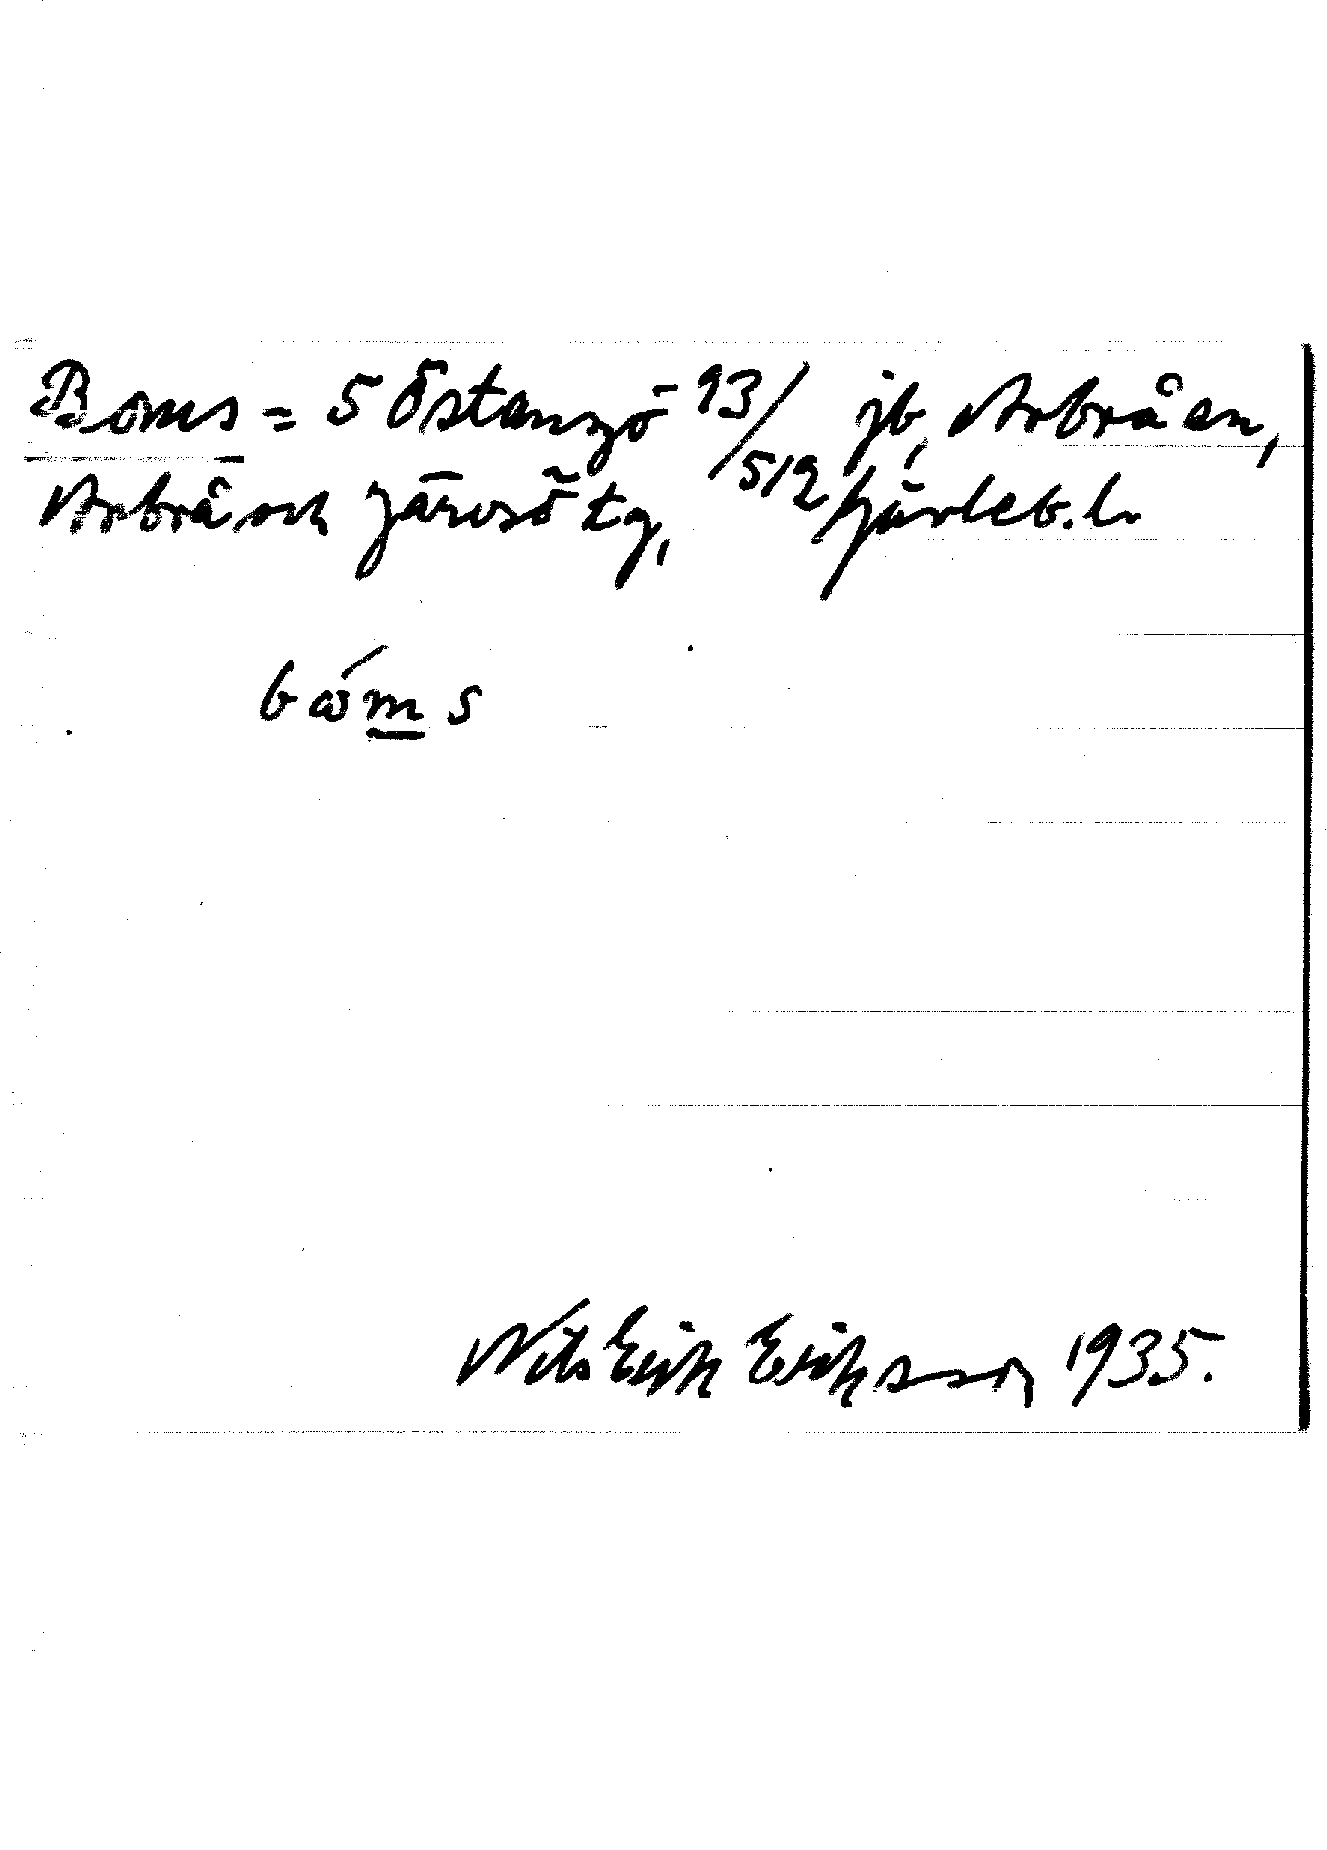 Boms = 5 Östansjö 93/512 jb, Arbrå sn,
Arbrå och Järvsö tg, Gävleb. l.
bωms
Nils Erik Eriksson 1935.